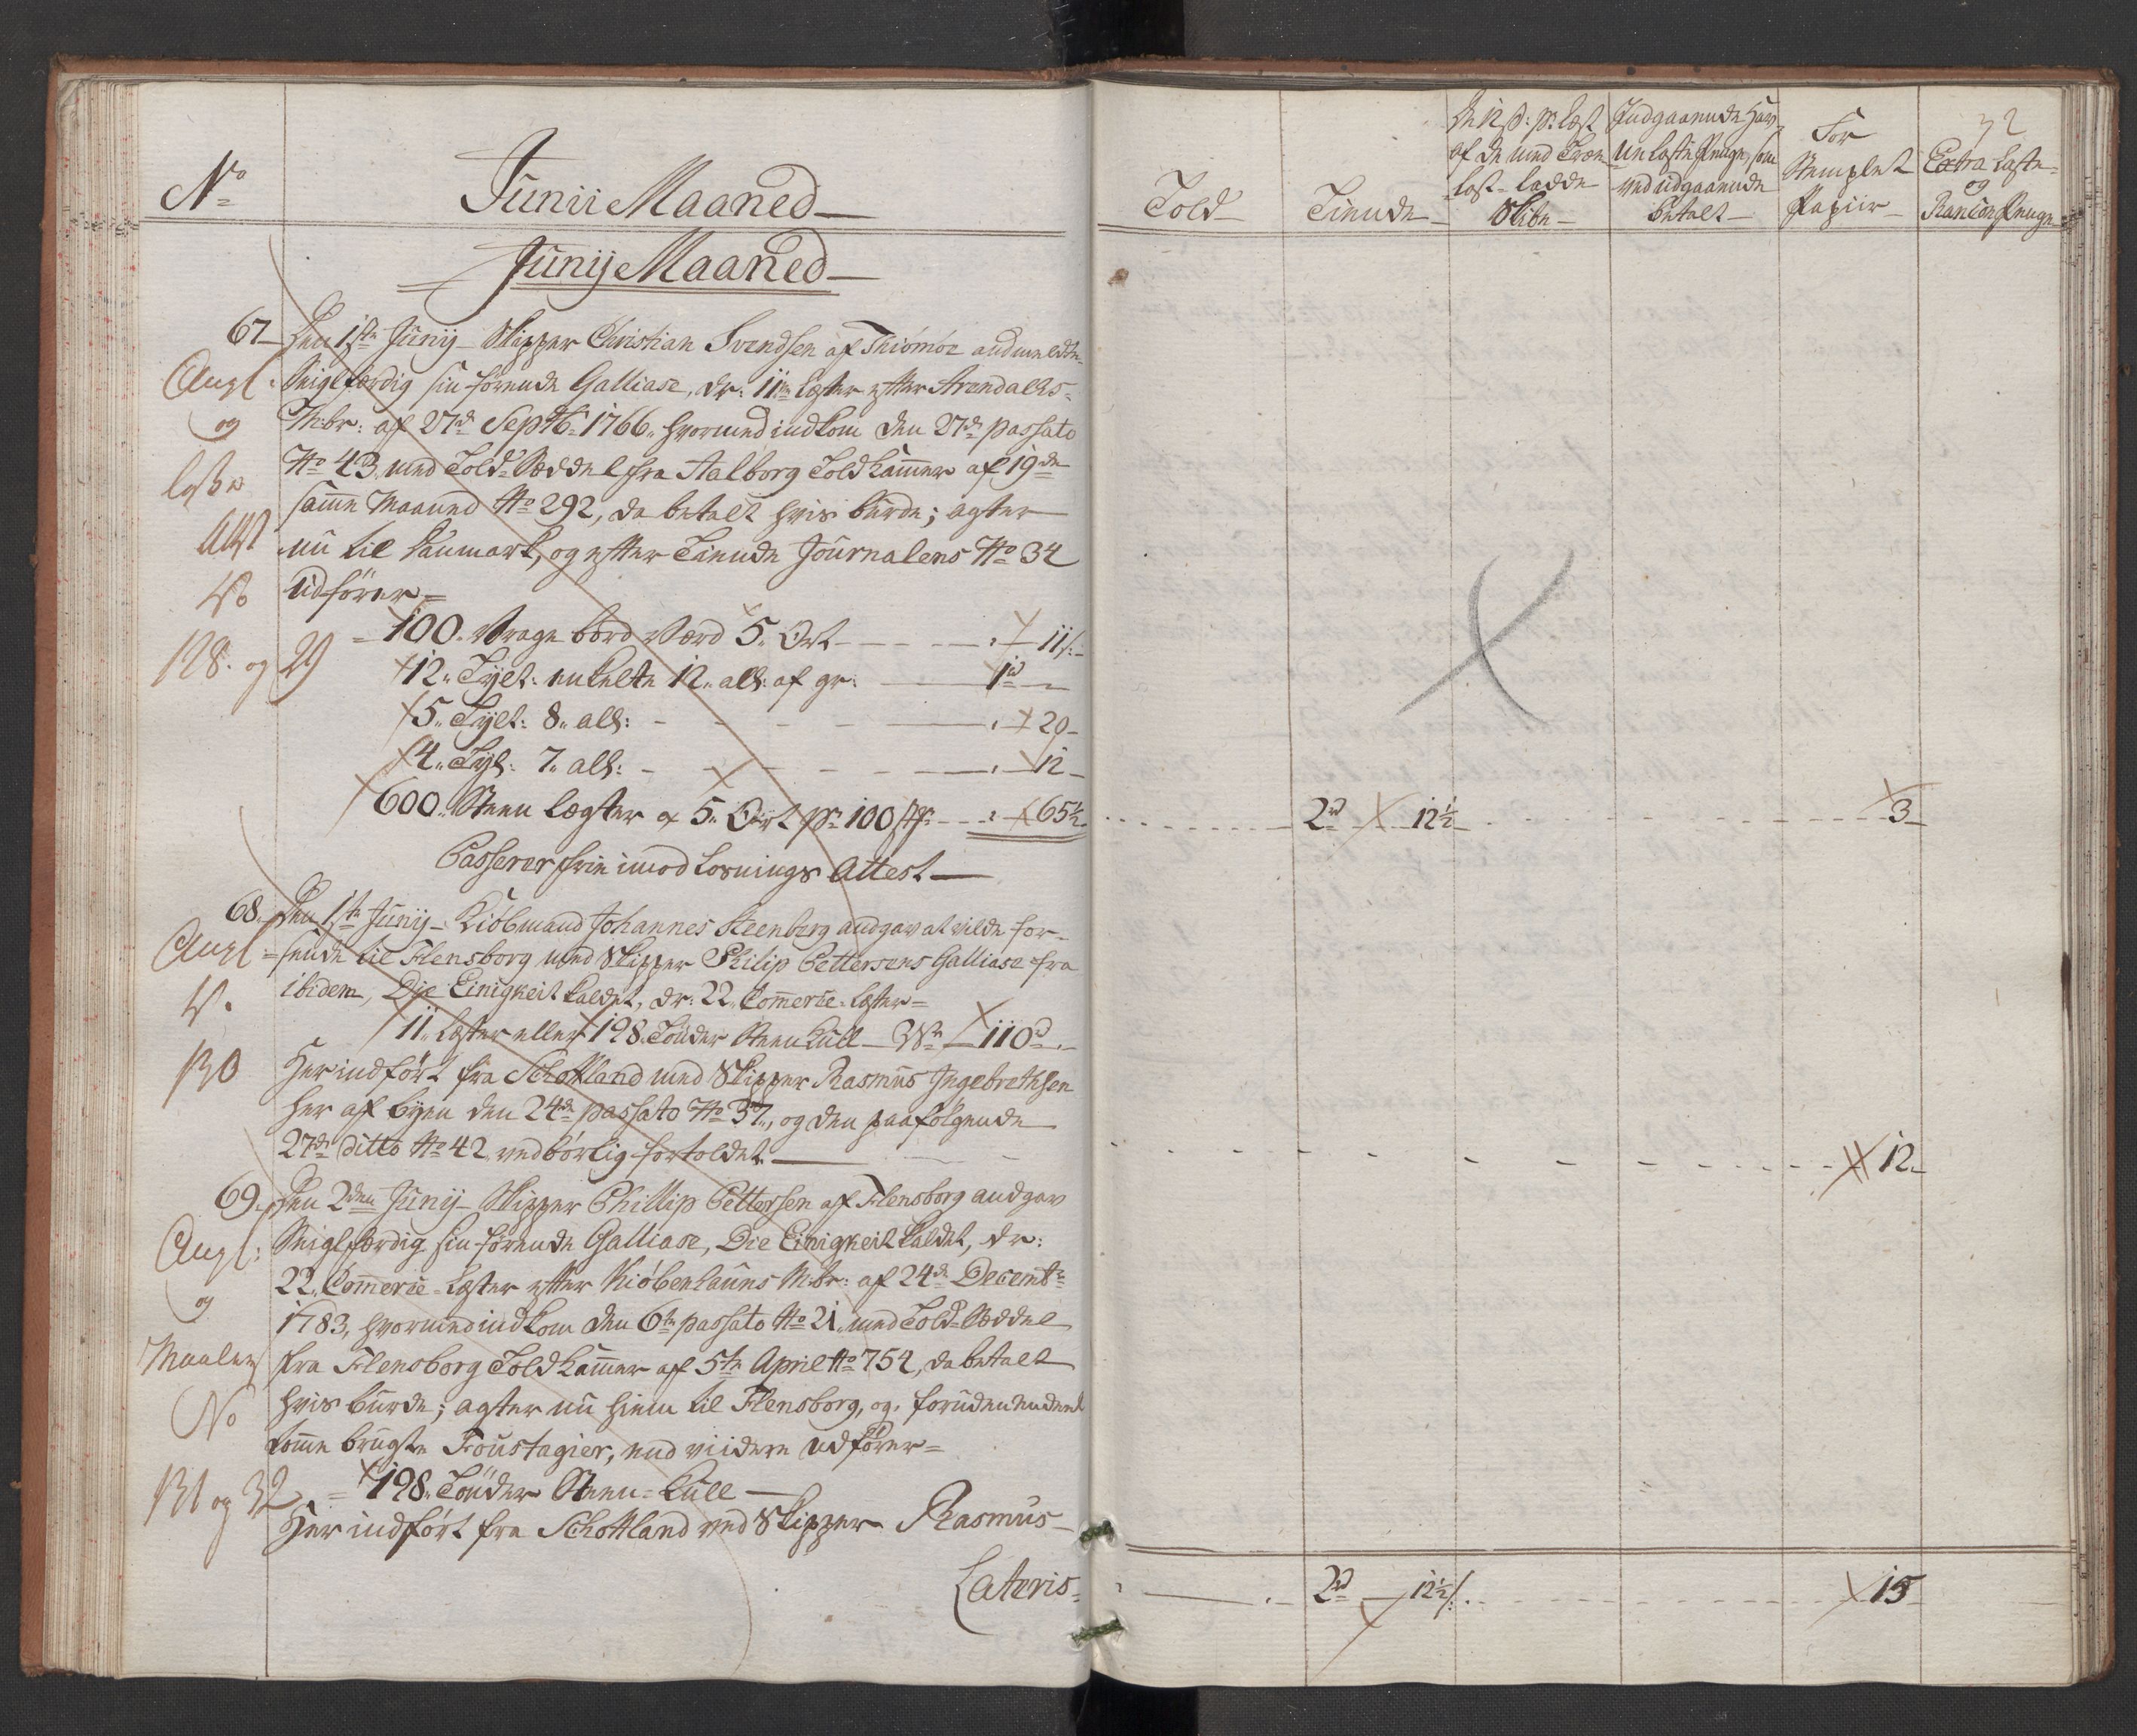 No
Junii Maaned
Junij Maaned
67 Den 1ste Junij Skipper Christian Svendsen af Thiömöe andmeldte
Seiglfærdig sin förende Galliase, dr: 11 Læster efter Arendahls
Mbr: af 27de Septbr 1766 hvormed indkom den 27de passato
No 43 med Told Seddel fra Aalborg Toldkammer af 19de
samme Maaned No 292, da betalt hvis burde; agter
nu til Danmark, og efter Tiende Journalens No 34
udförer
100 Vrage bord Værd 5 Ort 11
12 Tylt: enkelte 12 all: af gr: 1rd
5 Tylt: 8 all: 29
4 Tyl: 7 all: 12
600 Steen Lægter a 5 Ort pr 100 65½
Passerer frie imod Losnings Attest
Angl:
og
Att
No
128 og 29
68 Den 1ste Junij Kiöbmand Johannes Steenberg andgav at vilde for-
sende til Flensborg med Skipper Philip Pettersens Galliase fra
ibidem, Die Einigkeit kaldet, dr: 22 Commerce Læster
11 Læster eller 198 Tönder Steen Kull 110rd
Her indfört fra Schottland med Skipper Rasmus Ingebrethsen
her af byen den 24de passato No 37, og den paafölgende
27de ditto No 42 vedbörlig fortoldet
Angl:
No
130
69 Den 2den Junij Skipper Phillip Pettersen af Flensborg andgav
Seiglfærdig sin förende Galliase, Die Einigkeit kaldet, dr:
22 Commerce Læster efter Kiöbenhauns Mbr: af 24de Decembr
1783, hvormed indkom den 6te passato No 21 med Told Seddel
fra Flensborg Toldkammer af 5te April No 754, da betalt
hvis burde; agter nu hiem til Flensborg, og foruden eendeel
tomme brugte Foustagier, end viidere udförer
198 Tönder Steen Kull
Her indfört fra Schottland ved Skipper Rasmus
Lateris
Angl:
og
Maaler
No
131 og 32
32
Told
Tiende
De 12 s: pr Læst
af de med Træe
last ladde
Skibe
Indgaaende Hav
ne Laste Penge, som
ved udgaaende
betalt
For
Stemplet
Papiir
Extra Laste
og
Rancon Penge
2rd 12½ 3
12
2rd 12½ 15